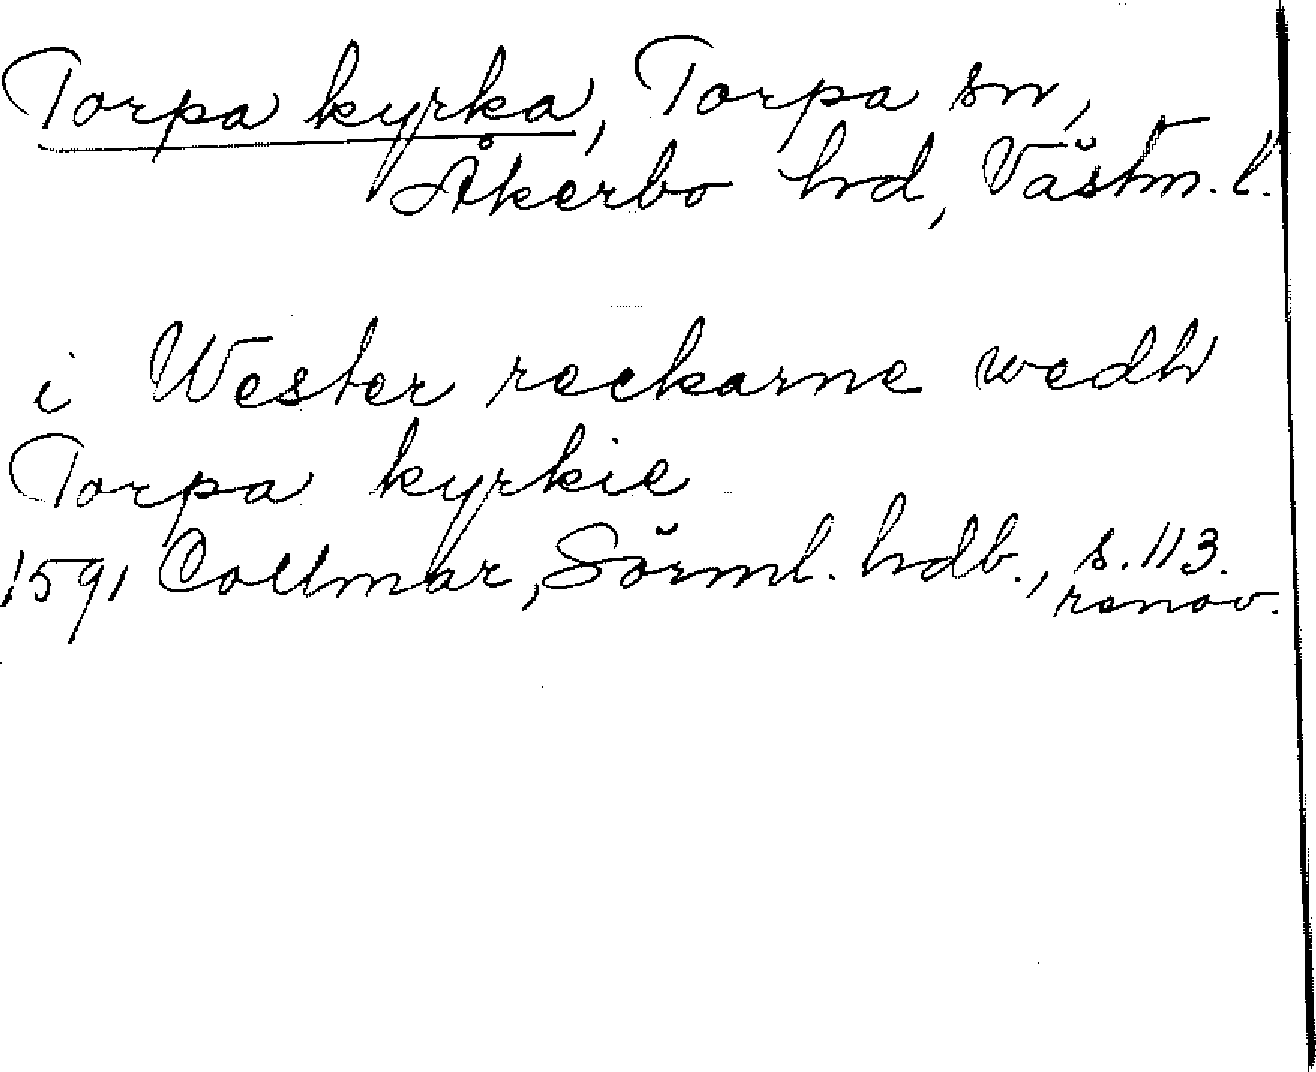 Torpa kyrka, Torpa sn,
Åkerbo hd, Västm. l.
i Wester reekarne wedh
Torpa kyrkie
1591 Collmar, Sörml. hdb., s. 113.
renov.